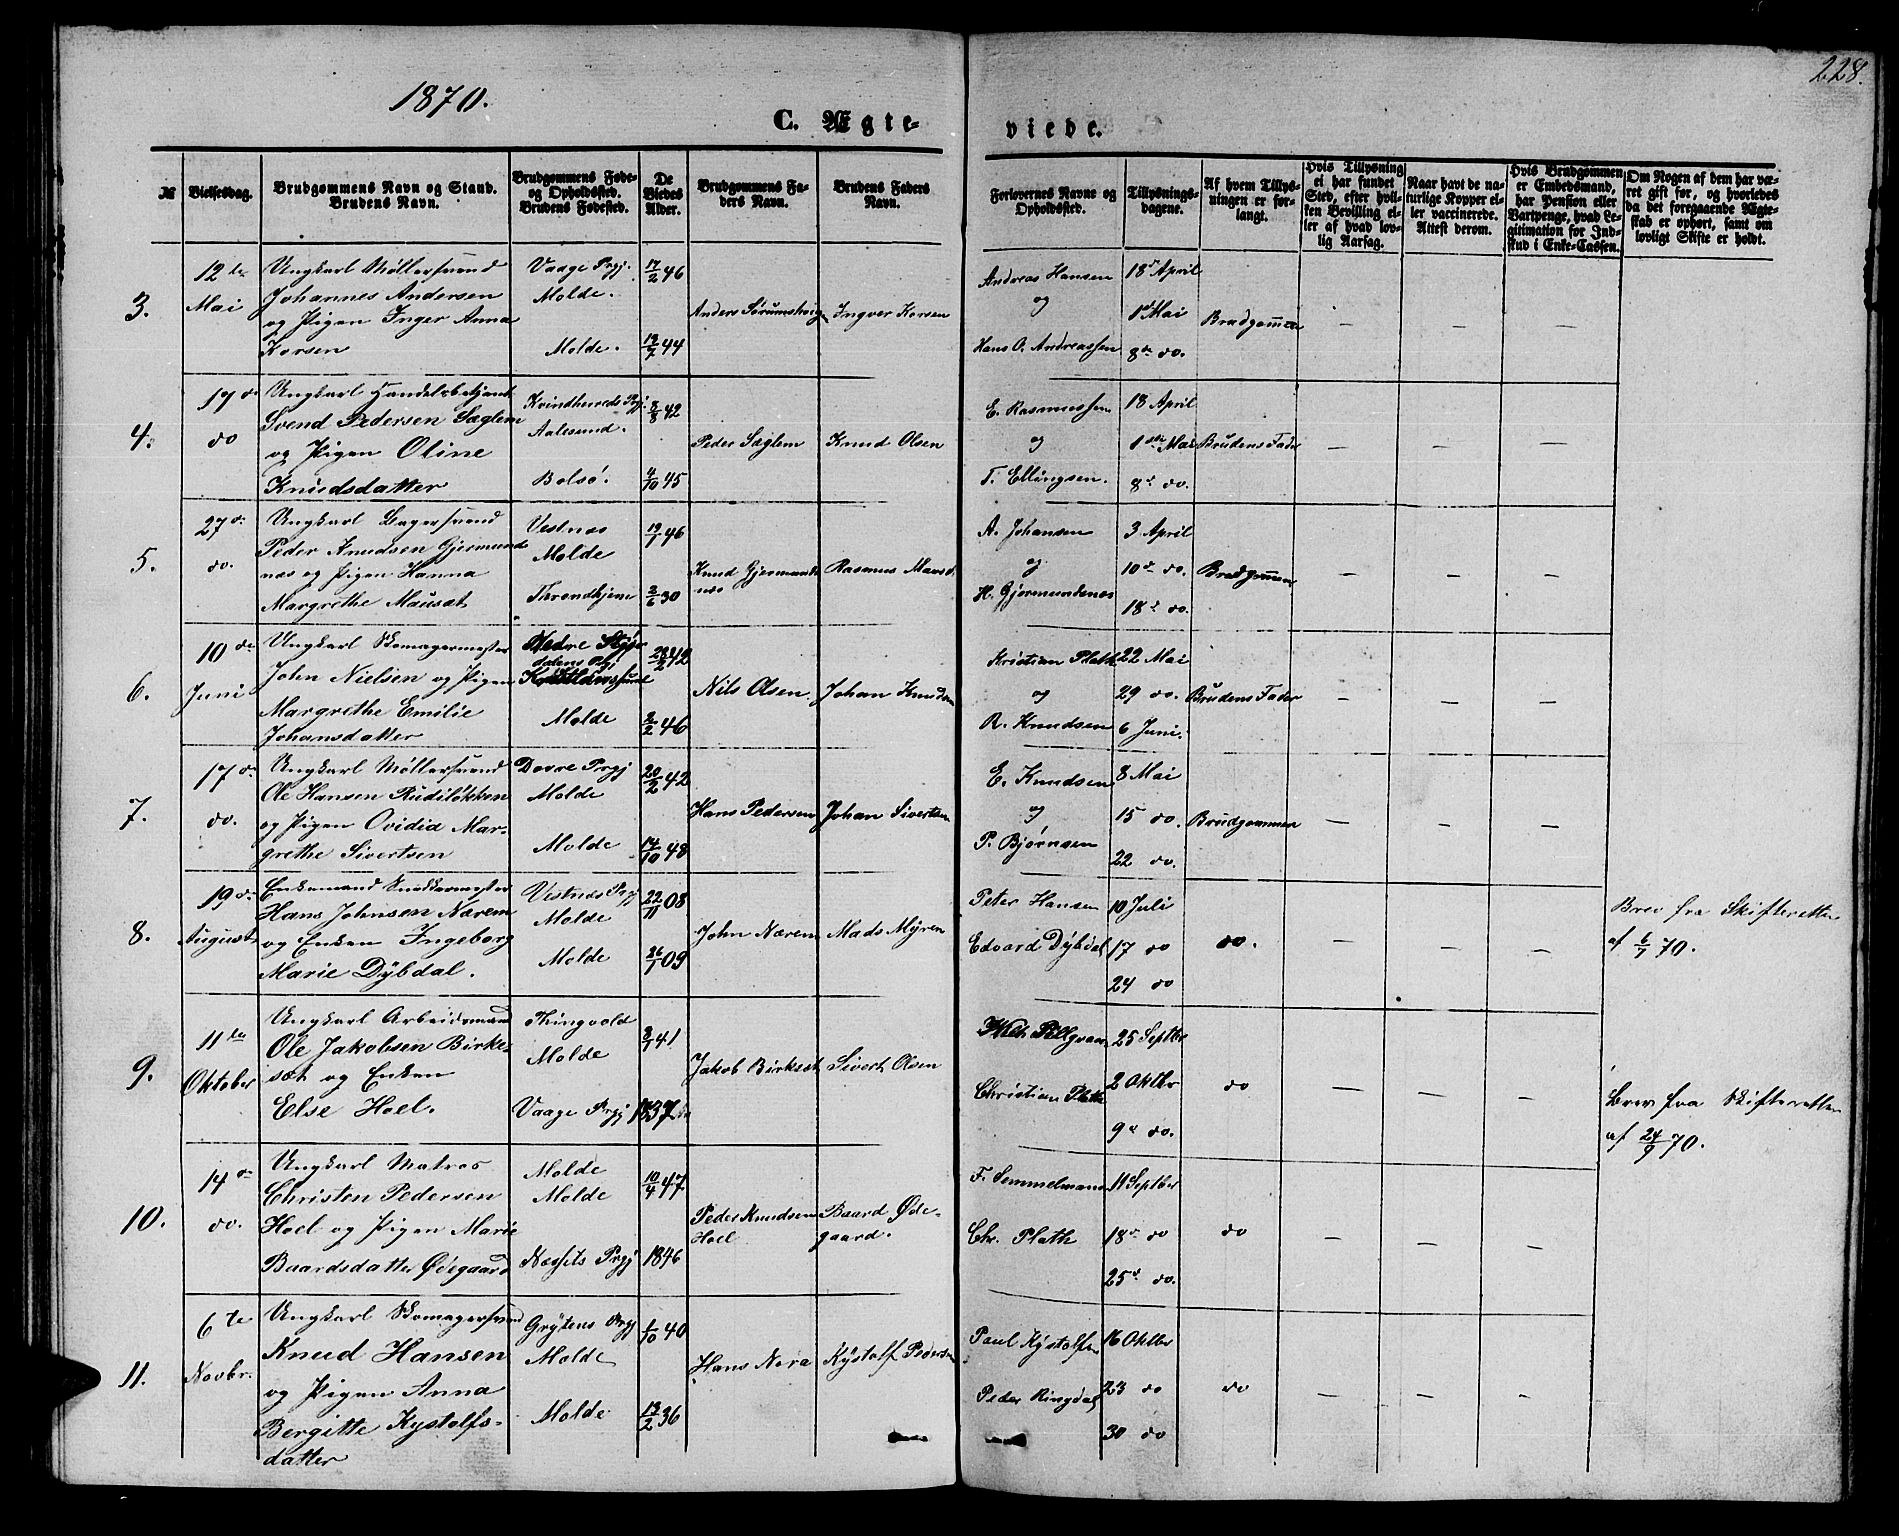 1870.
228.
C. Ægte-
viede.
№
Vielsesdag.
Brudgommens Navn og Stand.
Brudens Navn.
Brudgommens Føde-
og Opholdssted.
Brudens Fødested.
De
Viedes
Alder.
Brudgommens Fa-
ders Navn.
Brudens Faders
Navn.
Forlovernes Navne og
Opholdssted.
Tillysnings-
dagene.
Af hvem Tillys-
ningen er for-
langt.
Hvis Tillysning
ei har fundet
Sted, efter hvil-
ken Bevilling el-
ler af hvad lov-
lig Aarsag.
Naar havt de na-
turlige Kopper el-
ler vaccinerede.
Attest derom.
Hvis Brudgommen
er Embedsmand,
har Pension eller
Vartpenge, hvad Le-
gitimation for Ind-
skud i Enke-Cassen.
Om Nogen af dem har væ-
ret gift før, og hvorledes
da det foregaaende Ægte-
skab er ophørt, samt om
lovligt Skifte er holdt.
3.
12te
Mai
Ungkarl Møllersvend
Johannes Andersen
og Pigen Inger Anna
Korsen
Vaage Prgj.
Molde.
Molde.
17/2 46
19/7 44
Ingver Korsen
Andreas Hansen
og
Hans O. Andreassen
18d April
1d Mai
8de do.
Brudgommen
– – –
4.
17 de
do
Ungkarl Handelsbetjent
Svend Pedersen Sæglem
og Pigen Oline
Knudsdatter
Kvindherreds Prgj.
Aalesund.
Bolsø.
8/8 42
4/10 45
Peder Sæglem
Knud Olsen
E. Rasmussen
og
T. Ellingsen.
18 April
1ste Mai
8d do.
Brudens Fader
– – –
5.
27 de
do.
Ungkarl Bagersvend
Peder Knudsen Gjermund
næs og Pigen Hanna
Margrethe Mausæt
Vestnæs
Molde
Throndhjem
19/1 46
2/6 30
Knud Gjermunds
næs
Rasmus
A. Johansen
og
H. Gjermundsnæs
3 April
10de do.
18d do.
Brudgommen
– – –
6.
10 de
Juni
Ungkarl Skomagermester
John Nielsen og Pigen
Margrethe Emilie
Johansdatter
Nedre
dalens Prgj
Molde
28/2 42
2/2 46
Nils Olsen.
Johan Knudsen
Kristian Plath
og
R. Knudsen
22 Mai
29 do.
6 Juni.
Brudens Fader
– – –
7.
17 de
do.
Ungkarl Møllersvend
Ole Hansen Rudiløkken
og Pigen Ovidia Mar-
grethe Sivertsen
Dovre Prgj
Molde
Molde
20/2 42
14/10 48
Hans Pedersen
Johan Sivertsen
E. Knudsen
og
P. Bjørnsen
8 Mai
15 do.
22 do.
Brudgommen
– – –
8.
19 de
August
Enkemand Snedkermester
Hans Johnsen Nærem
og Enken Ingeborg
Marie Dybdal.
Vestnæs Prgj
Molde
Molde
22/11 08
26/1 09
John Nærem
Mads Myren
Peter Hansen
Edvard Dybdal
10 Juli
17 do
24 do
do.
– – –
Brev fra Skifteretten
af 6/7 70.
9.
11te
Oktober
Ungkarl Arbeidsmand
Ole Jakobsen Birke-
sæt og Enken
Else Hoel.
Thingvold
Molde
Vaage Prgj
2/1 41
1837
Jakob Birkesæt
Sivert Olsen
Christian Plath
25 Septbr
2 Oktbr
9d do.
do
– – –
Brev fra Skifteretten
af 24/9 70.
10.
14 de
do.
Ungkarl Matros
Christen Pedersen
Hoel og Pigen Marie
Baardsdatter Ødegaard
Molde
Molde
Næssets Prgj
10/4 47
1846
Peder Knudsen
Hoel
Baard Øde-
gaard.
F. Semmelmann
Chr. Plath
11 Septbr
18de do
25d do.
do
– – –
11.
6te
Novbr.
Ungkarl Skomagersvend
Knud Hansen
og Pigen Anna
Bergitte Kystolfs-
datter
Grytens Prgj
Molde
Molde
1/10 40
13/2 36
Hans Nora
Kystolf Pedersen
Paul Kystolfsen
Peder Ringdal
16 Oktbr
23 do
30 do
do
– – –